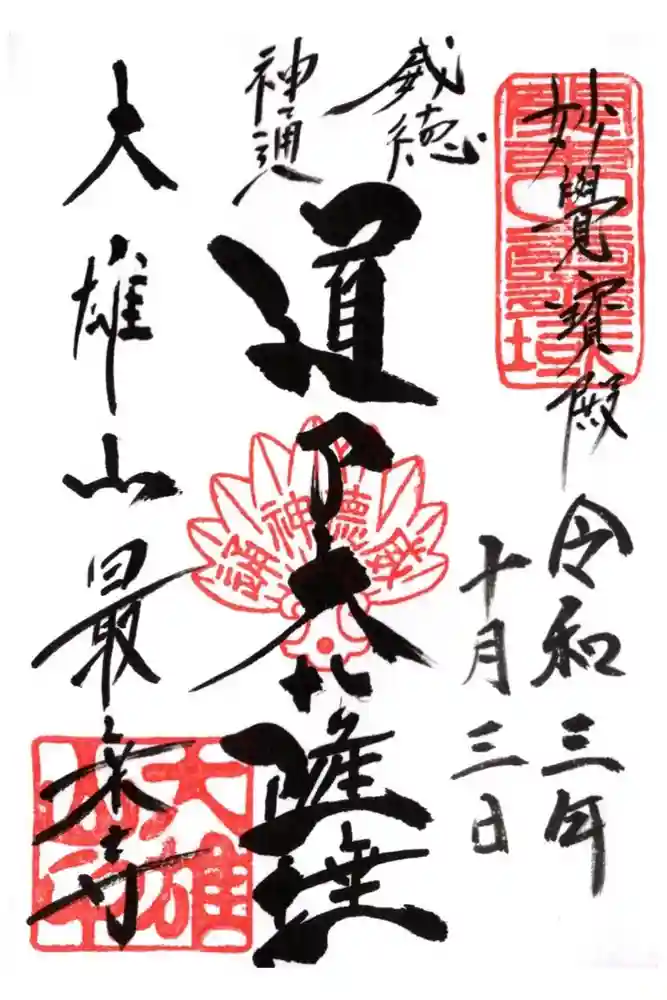 妙覺寶殿
令和三年
十月三日
威徳
神通
道了大薩埵
威徳神通
大雄山最乗寺
大雄山印